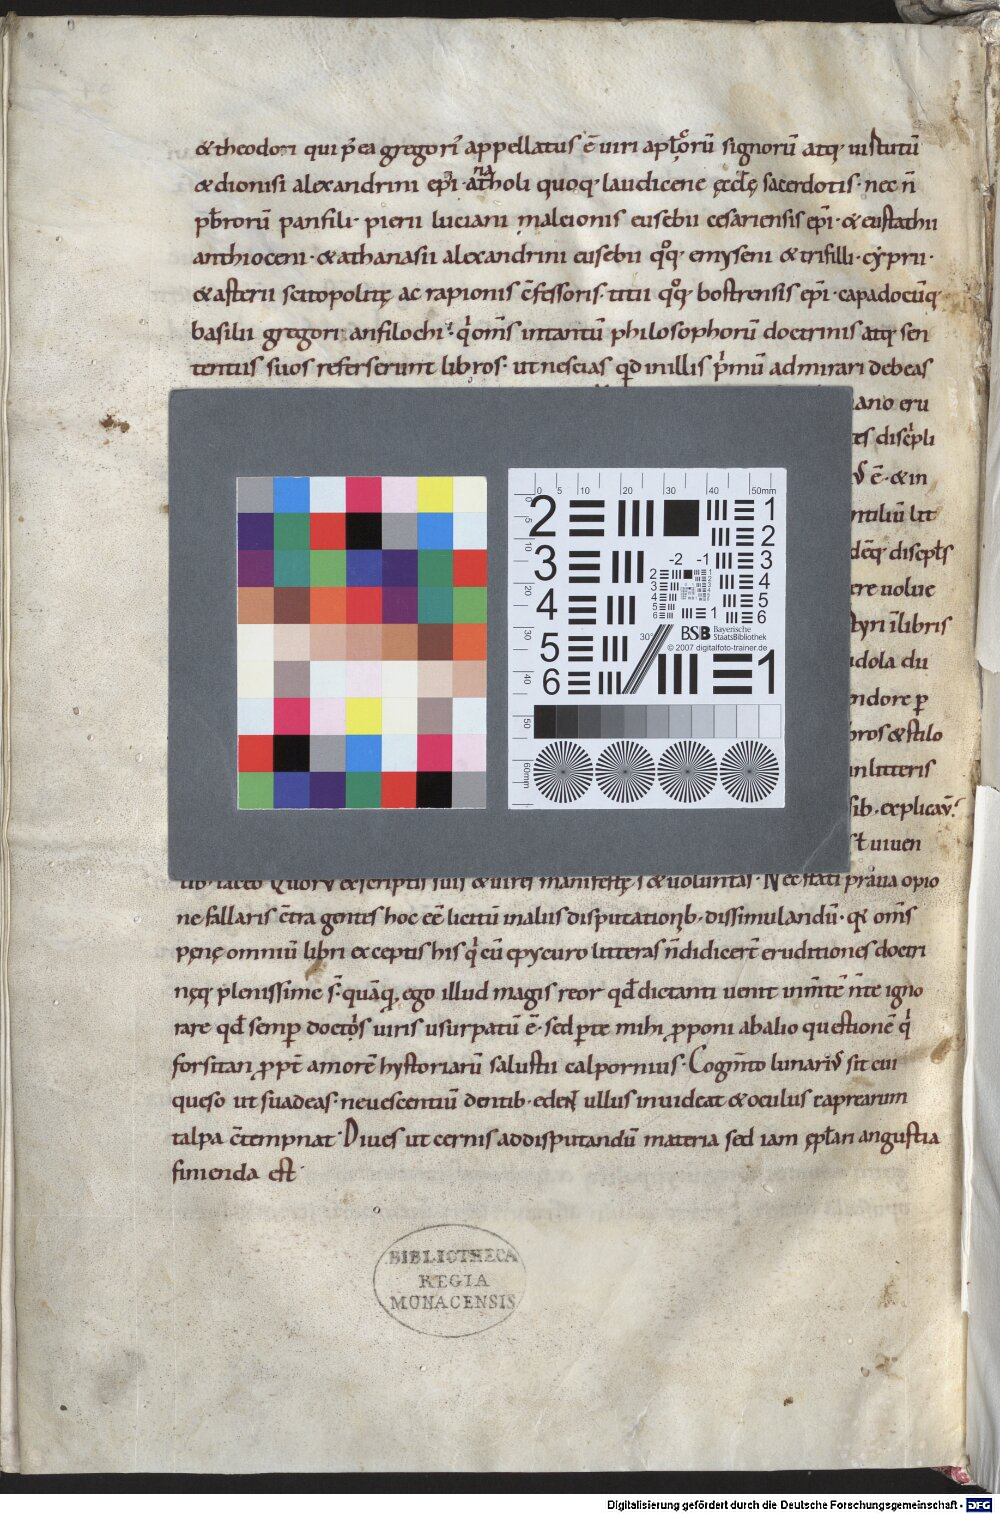 & theodori qui p̄ ea gregori᾽ appellatus ē uiri apl̄oꝝ signorū atq· uirtutū
& dionisi alexandrini ep̄i· anatholi quoq· laudicene ęccl̄ę sacerdotis· nec ñ
pb̄rorū panfili· pierii luciani malcionis eusebii cesariensis ep̄i· & eustathii
anthioceni· & athanasii alexandrini eusebii qoq· emyseni & trifilli· cyprii·
& asterii scitopolitę ac rapionis c̄fessoris· titii qoq· bostrensis ep̄i· capadocūq
basilii gregori anfilochi· q̇ om̄s intantū philosophorū doctrinis atq· sen
tentiis suos referserunt libros· ut nescias qd inillis p̄mū admirari debeas
ano eru
es discipli
ē· & in
ntiliū lit
deq· discipl̄s
ere uolue
tyri īlibris
dola du
ndore p
bros & stilo
inlitteris
sib· explicav̄
st uiuen
tib· taceo quorū exscriptis suis & uires manifestę s̄ & uoluntas· Nec stati praua opio
ne fallaris c̄tra gentes hoc eē licitū inaliis disputationib· dissimulandū· q̇ om̄s
penę omniū libri exceptis his q̇ cū epycuro litteras ñdidicer̄t eruditiones doctri
nęq· plenissime s̄· quāq· ego illud magis reor qd dictanti uenit inm̄te ñte igno
rare qd semp doctos uiris usurpatū ē· sed p̱te mihi p̱poni abalio questionē q̇
forsitan p̱pt̄ amorē hystoriarū salustii calpornius· Cogm̄to lunarīs sit cui
queso ut suadeas· neuescentiū dentib· edent ullus inuideat & oculus caprearum
talpa c̄tempnat· Diues ut cernis addisputandū materia sed iam ępl̄ari angustia
finienda est·
BIBLIOTHECA
REGIA
MONACENSIS
0 5 10 20 30 40 50mm
2 1
2
3 3
-2 -1
4 4
5
6
5 30°
BSB Bayerische
StaatsBibliothek
© 2007 digitalfoto-trainer.de
6 1
0 5 10 20 30 40 50 60mm
Digitalisierung gefördert durch die Deutsche Forschungsgemeinschaft - DFG